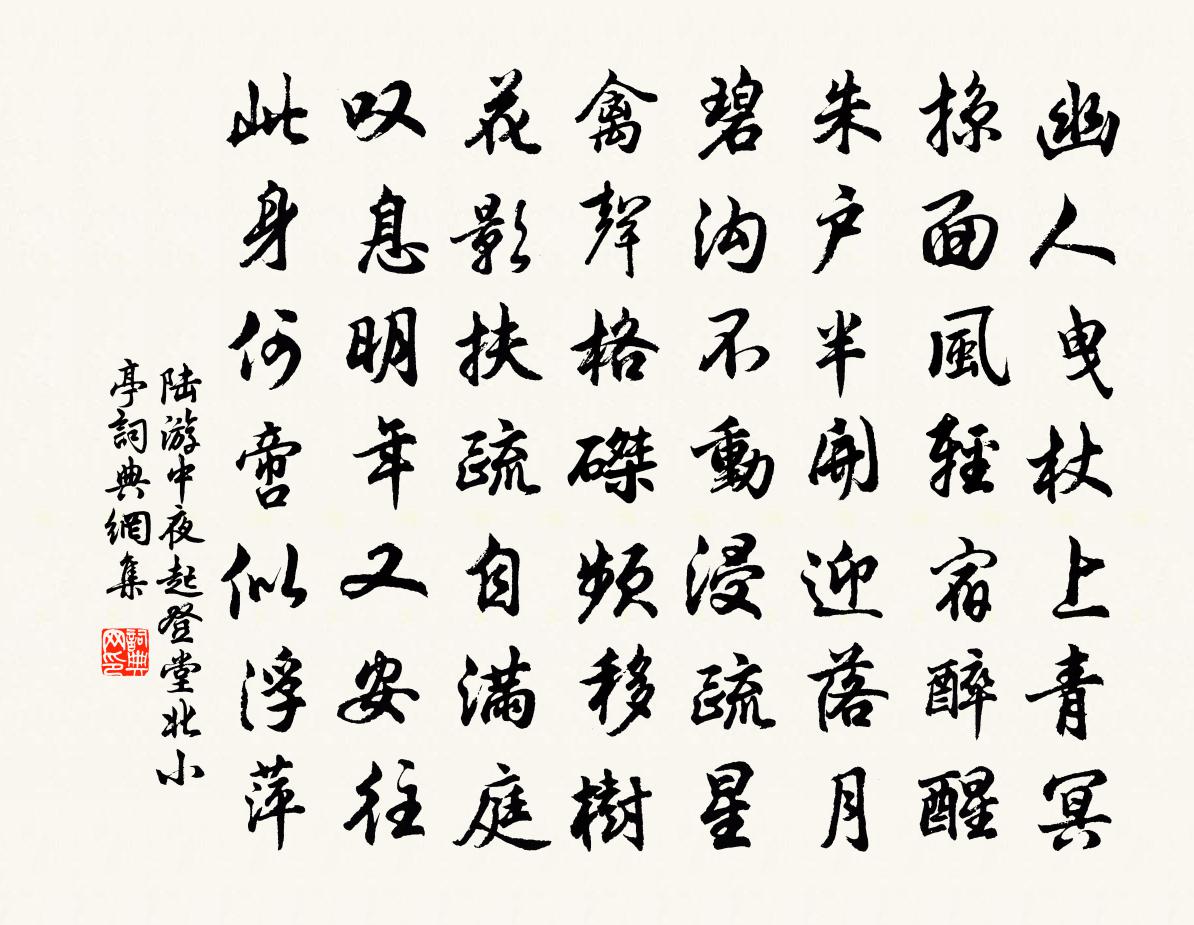 幽人曳杖上青冥
掠面風輕宿醉醒
朱户半開迎落月
碧沟不動浸疏星
禽聲格磔頻移樹
花影扶疏自滿庭
叹息明年又安往
此身何啻似浮萍
陆游中夜起登堂北小
亭詞典網集
詞典
网印